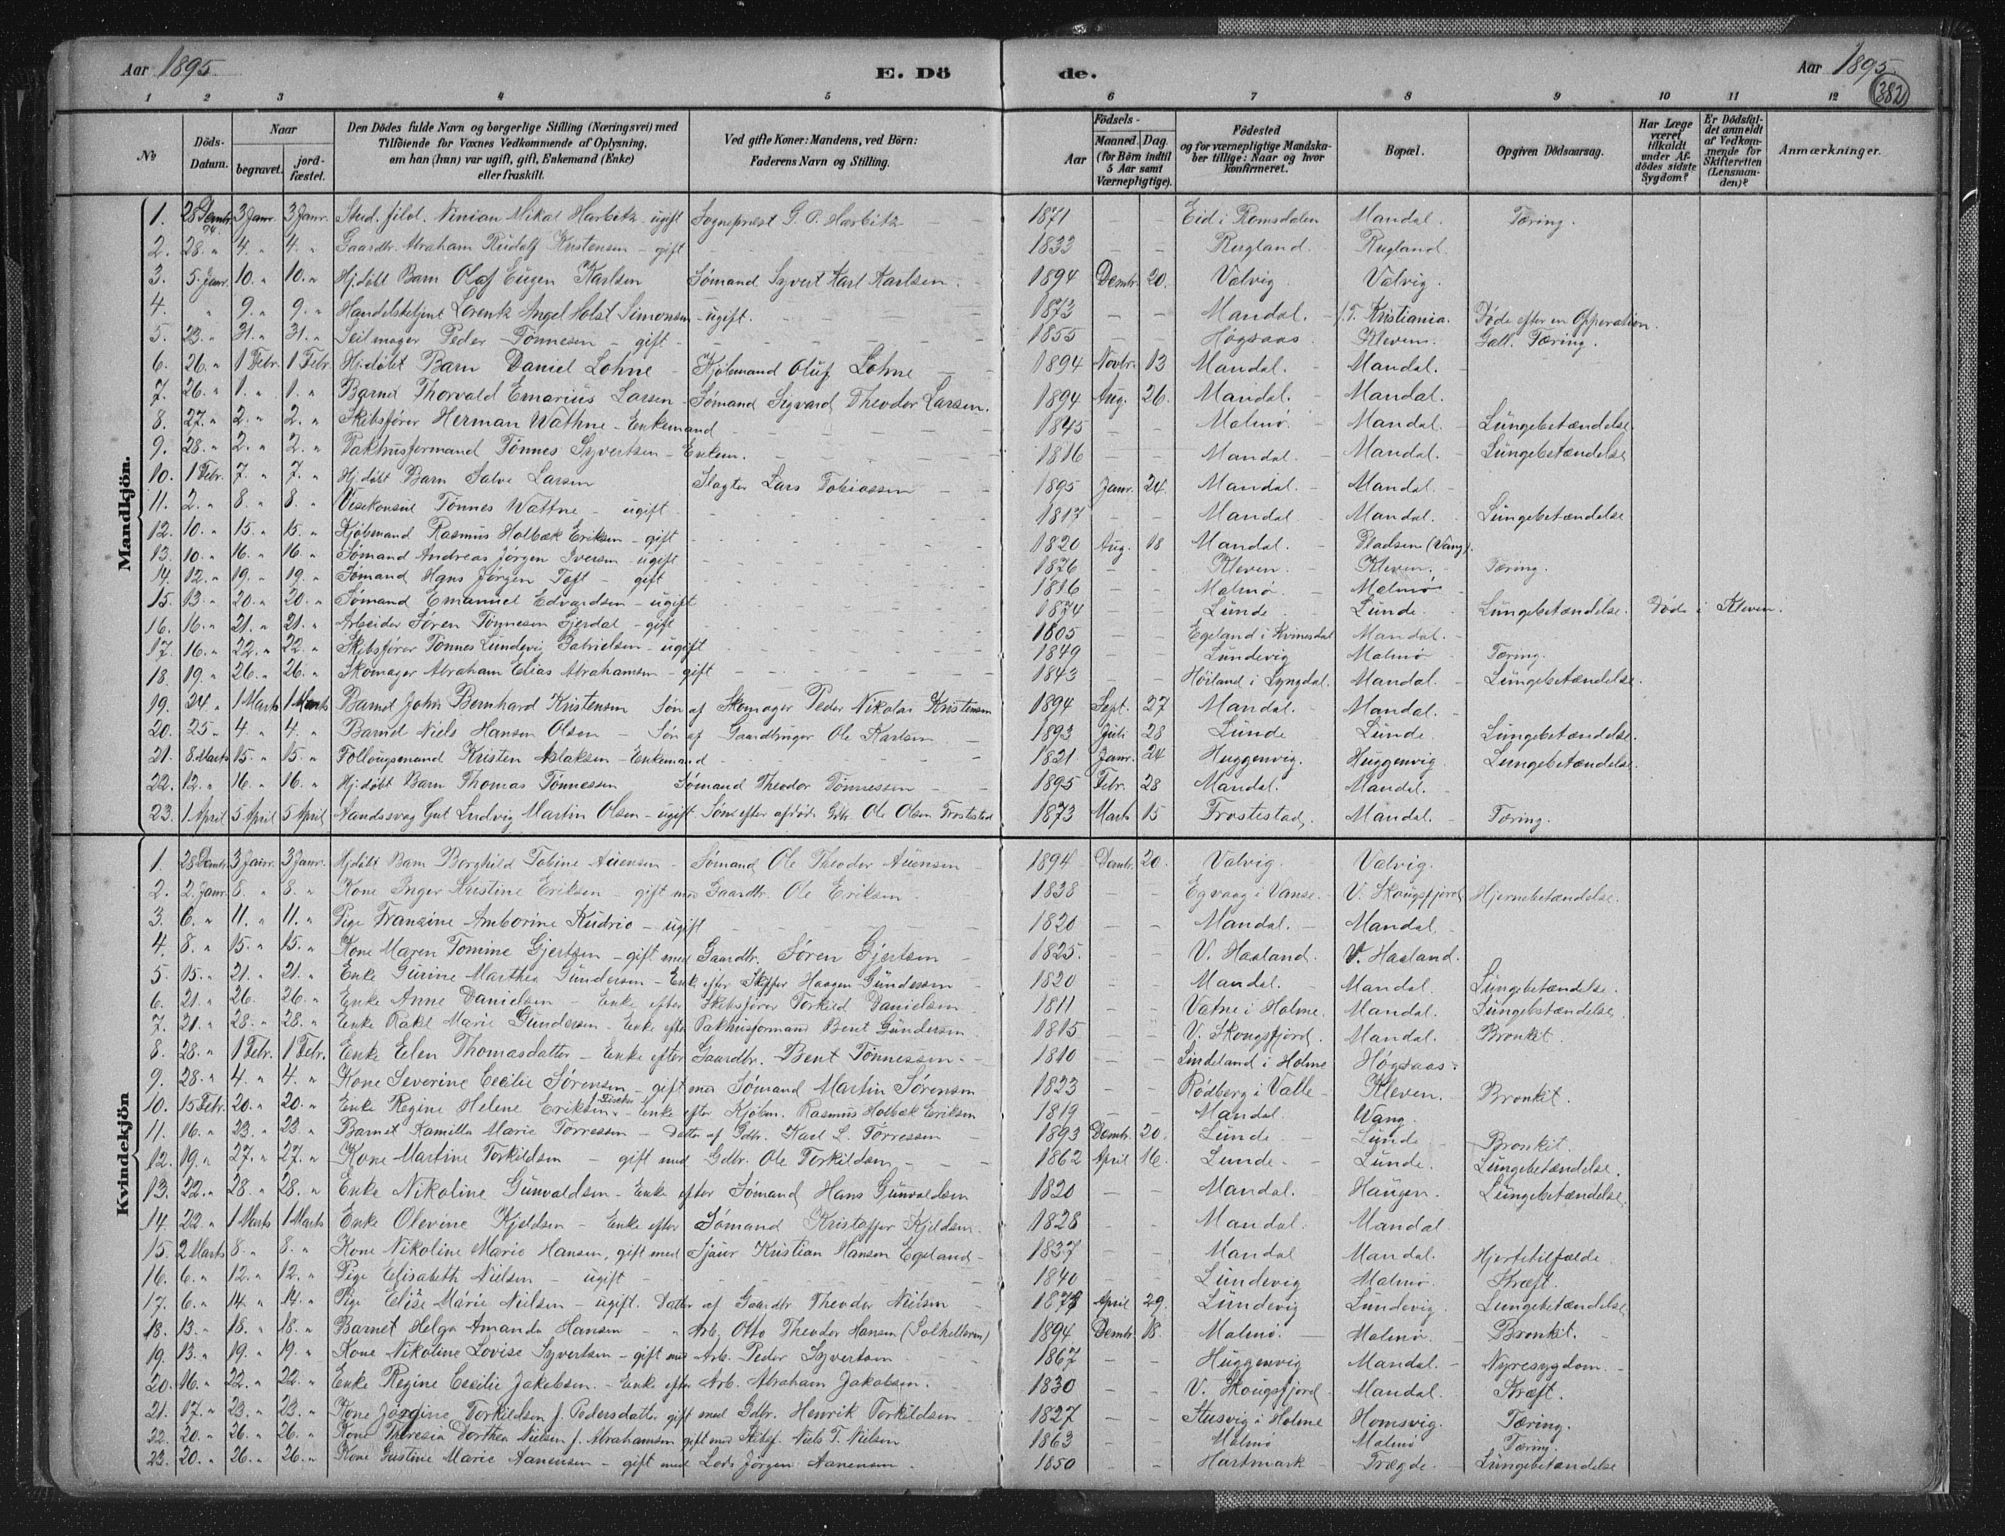 Aar 1895
E. Dö
de.
Aar 1895
382
1 2 3 4 5 6 7 8 9 10 11 12
No
Döds-Datum.
Naar
begravet.
jord-fæstet.
Den Dödes fulde Navn og borgerlige Stilling (Næringsvei) med
Tilföiende for Voxnes Vedkommende af Oplysning,
om han (hun) var ugift, gift, Enkemand (Enke)
eller fraskilt.
Ved gifte Koner: Mandens, ved Börn:
Faderens Navn og Stilling.
Födsels-
Aar
Maaned. Dag.
(for Börn indtil 5 Aar samt Værnepligtige).
Födested
og for værnepligtige Mandskaber tillige: Naar og hvor konfirmeret.
Bopæl.
Opgiven Dödsaarsag.
Har Læge været tilkaldt under Afdödes sidste Sygdom?
Er Dödsfaldet anmeldt af Vedkommende for Skifteretten (Lensmanden)?
Anmærkninger.
Mandkjön.
1. 28 Dembr. 94. 3 Janr. 3 Janr. Stud. filol. Ninian Mikal Harbitz - ugift Sogneprest G. P. Harbitz 1871 Eid i Romsdalen Mandal. Tæring.
2. 28. " 4. " 4. " Gaardbr. Abraham Rudolf Kristensen - gift 1833 Rugland. Rugland.
3. 5. Janr. 10. " 10. " Hj.døbt Barn Olaf Eugen Karlsen Sømand Syvert Karl Karlsen. 1894 Dembr. 20. Valvig. Valvig.
4. " 9. " 9. " Handelsbetjent Lorentz Angel Holst Simonsen - ugift. 1873 Mandal. Kristiania. Døde efter en Operation.
5. 23. " 31. " 31. " Seilmager Peder Tønnesen - gift 1855 Høgsaas Kleven. Gall. Tæring.
6. 26. " 1 Febr. 1 Febr. Hj.døbt Barn Daniel Lohne - Kjøbmand Oluf Lohne 1894 Novbr. 13 Mandal. Mandal.
7. 26. " 1. " 1. " Barnet Thorvald Emarius Larsen - Sømand Sigvard Theodor Larsen. 1894 Aug. 26. Mandal. Mandal.
8. 27. " 2. " 2. " Skibsfører Herman Wathne - Enkemand 1845 Malmø. Mandal. Lungebetændelse.
9. 28. " 2. " 2. " Pakhusformand Tønnes Syvertsen - Enkem. 1816 Mandal. Mandal. Lungebetændelse
10. 1 Febr. 7. " 7. " Hj.døbt Barn Salve Larsen Slagter Lars Tobiassen 1895 Janr. 24. Mandal. Mandal.
11. 2. " 8. " 8. " Visekonsul Tønnes Wattne - ugift. 1817 Mandal. Mandal. Lungebetændelse
12. 10. " 15. " 15. " Kjøbmand Rasmus Holbæk Eriksen - gift 1820 Aug. 18 Mandal. Pladsen (Vang).
13. 10. " 16. " 16. " Sømand Andreas Jørgen Iversen - ugift 1876 Kleven. Kleven. Tæring.
14. 12. " 19. " 19. " Sømand Hans Jørgen Toft - gift 1816 Malmø Malmø
15. 13. " 20. " 20. " Sømand Emanuel Edvardsen - ugift 1874 Lunde Lunde. Lungebetændelse. Døde i Kleven.
16. 16. " 21. " 21. " Arbeider Søren Tønnesen Gjerdal - gift 1805 Egeland i Kvinesdal Mandal.
17. 16. " 22. " 22. " Skibsfører Tønnes Lundevig Gabrielsen - ugift 1849 Lundevig Malmø Tæring.
18. 19. " 26. " 26. " Skomager Abraham Elias Abrahamsen - gift 1843 Høiland i Lyngdal. Mandal. Lungebetændelse.
19. 24. " 1 Marts 1 Marts Barnet John Bernhard Kristensen Søn af Skomager Peder Nikolai Kristensen 1894 Sept. 27 Mandal. Mandal.
20. 25. " 4. " 4. " Barnet Niels Hansen Olsen - Søn af Gaardbruger Ole Karlsen 1893 Juli 28 Lunde Lunde. Lungebetændelse.
21. 8. Marts 15. " 15. " Follougsmand Kristen Aslaksen - Enkemand 1821 Janr. 24 Huggenvig. Huggenvig. Lungebetændelse.
22. 12. " 16. " 16. " Hj.døbt Barn Thomas Tønnessen Sømand Theodor Tønnessen 1895 Febr. 28 Mandal. Mandal.
23. 1 April 5 April 5 April Ludvig Martin Olsen - ugift Søn efter afdøde Gbr. Ole Olsen Frostestad 1873 Marts 15 Frostestad, Mandal. Tæring.
Kvindekjön
1. 28 Dembr. 3 Janr. 3 Janr. Hj.døbt Barn Borghild Tobine Auensen - Sømand Ole Theodor Auensen 1894 Dembr. 20. Valvig. Valvig.
2. 2. Janr. 8. " 8. " Kone Inger Kristine Eriksen - gift med Gaardbr. Ole Eriksen. 1838 Egvaag i Vanse. V. Skougsfjord Hjernebetændelse.
3. 6. " 11. " 11. " Pige Fransine Amborine Kudrio - ugift 1820 Mandal. Mandal.
4. 8. " 15. " 15. " Kone Maren Tomine Gjertsen - gift med Gaardbr. Søren Gjertsen 1825. V. Haaland. V. Haaland.
5. 15. " 21. " 21. " Enke Gurine Marthea Gundersen - Enke efter Skipper Haagen Gundersen 1820 Mandal. Mandal. Lungebetændelse.
6. 21. " 26. 26. " Enke Anne Danielsen - Enke efter Skibsfører Torkild Danielsen 1811 Vatne i Holme. Mandal. Lungebetændelse
7. 21. " 28. " 28. " Enke Rakel Marie Gundersen - Enke efter Pakhusformand Bent Gundersen 1815 V. Skougsfjord. Mandal. Bronkit.
8. 28. " 1 Febr. 1 Febr. Enke Elen Thomasdatter - Enke efter Gaardbr. Bent Tønnessen 1810 Lindeland i Holme Høgsaas.
9. 28. " 4. " 4. " Kone Severine Cecilie Sørensen - gift med Sømand Martin Sørensen 1823 Rødberg i Valle Kleven. Bronkit.
10. 15 Febr. 20. " 20. " Enke Regine Helene Eriksen - Enke efter Kjøbm. Rasmus Holbæk Eriksen 1819 Mandal. Wang.
11. 16. " 23. " 23 " Barnet Kamilla Marie Torressen - Datter af Gdbr. Karl L. Torressen 1893 Dembr. 20. Lunde. Lunde Bronkit.
12. 19. " 27. " 27. " Kone Martine Torkildsen - gift med Gdbr. Ole Torkildsen 1862 April 16. Lunde. Lunde. Lungebetændelse.
13. 22. " 28. " 28. " Enke Nikoline Gunvaldsen - Enke efter Sømand Hans Gunvaldsen 1820 Mandal. Haugen. Lungebetændelse.
14. 22. " 1 Marts 1 Marts Enke Olevine Kjeldsen - Enke efter Sømand Kristoffer Kjeldsen. 1828 Mandal. Mandal
15. 2 Marts 8. " 8. " Kone Nikoline Marie Hansen, gift med Sjauer Kristian Hansen Egeland 1837 Mandal Mandal. Hjertetilfælde.
16. 6. " 12. " 12. " Pige Elisabeth Nielsen - ugift 1840 Lundevig Malmø. Kræft.
17. 6. " 14. " 14. " Pige Elise Marie Nielsen - ugift. Datter af Gaardbr. Theodor Nielsen April 29. Lundevig Lundevig. Lungebetændelse
18. 13. " 18. " 18. " Barnet Helga Amanda Hansen - " Arb. Otto Theodor Hansen 1894 Dembr. 18. Malmø. Malmø. Bronkit.
19. 13. " 19. " 19. " Kone Nikoline Lovise Syvertsen - gift med Arb. Peder Syvertsen 1867 Huggenvig Mandal. Nyresygdom.
20. 16. " 22. " 22. " Enke Regine Cecilie Jakobsen. - Enke efter Arb. Abraham Jakobsen. 1830 V. Skougsfjord Mandal. Kræft.
21. 17. " 23. " 23. " Kone Jørgine Torkildsen f. Pedersdatter gift med Gdbr. Henrik Torkildsen 1827 Stusvig i Holme Homsvig. Tæring.
22. 20. " 26. " 26. " Kone Theresia Dorthea Nielsen f. Abrahamsen gift med Skibsf. Niels T. Nielsen 1863 Malmø Malmø Tæring.
23. 20. " 26. " 26. " Kone Gustine Marie Aanensen - gift med Lods Jørgen Aanensen. 1850 Hartmark Trægde. Lungebetændelse